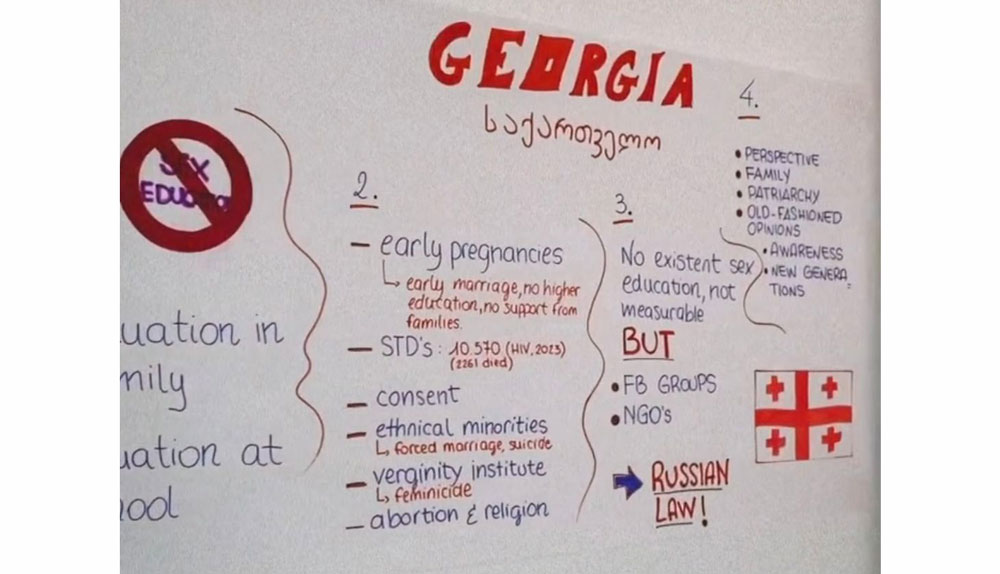 GEORGIA
საქართველო
SEX
EDUCATIO
uation in
mily
uation at
ool
2.
– early pregnancies
↳ early marriage, no higher
education, no support from
families.
– STD's : 10.570 (HIV, 2023)
(2261 died)
– consent
– ethnical minorities
↳ forced marriage, suicide
– verginity institute
↳ feminicide
– abortion & religion
3.
No existent sex
education, not
measurable
BUT
• FB GROUPS
• NGO's
➡ RUSSIAN
LAW!
4.
• PERSPECTIVE
• FAMILY
• PATRIARCHY
• OLD-FASHIONED
OPINIONS
• AWARENESS
• NEW GENERA
TIONS